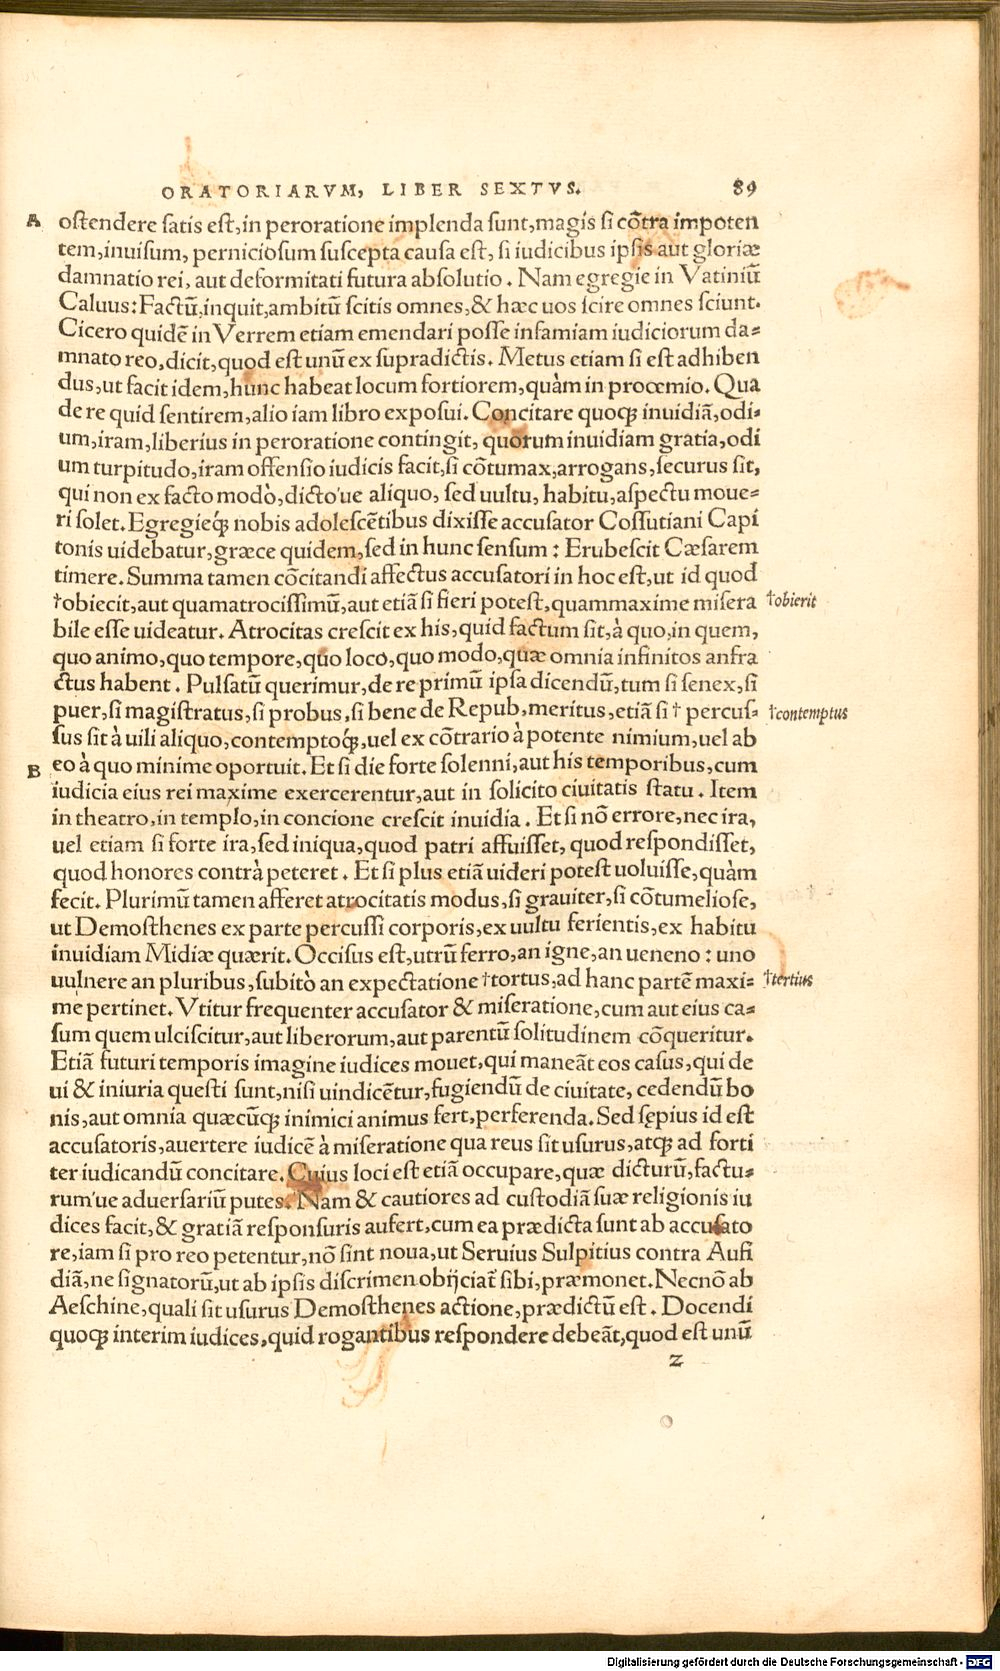 ORATORIARVM, LIBER SEXTVS. 89
A ostendere satis est, in peroratione implenda sunt, magis si cõtra impoten
tem, inuisum, perniciosum suscepta causa est, si iudicibus ipsis aut gloriæ
damnatio rei, aut deformitati futura absolutio. Nam egregie in Vatiniũ
Caluus: Factũ, inquit, ambitũ scitis omnes, & hæc uos scire omnes sciunt.
Cicero quidẽ in Verrem etiam emendari posse infamiam iudiciorum da=
mnato reo, dicit, quod est unũ ex supradictis. Metus etiam si est adhiben
dus, ut facit idem, hunc habeat locum fortiorem, quàm in procemio. Qua
de re quid sentirem, alio iam libro exposui. Concitare quoqꝫ inuidiã, odi=
um, iram, liberius in peroratione contingit, quorum inuidiam gratia, odi
um turpitudo, iram offensio iudicis facit, si cõtumax, arrogans, securus sit,
qui non ex facto modò, dicto'ue aliquo, sed uultu, habitu, aspectu moue=
ri solet. Egregieqꝫ́ nobis adolescẽtibus dixisse accusator Cossutiani Capi
tonis uidebatur, græce quidem, sed in hunc sensum: Erubescit Cæsarem
timere. Summa tamen cõcitandi affectus accusatori in hoc est, ut id quod
†obiecit, aut quamatrocissimũ, aut etiã si fieri potest, quammaxime misera †obierit
bile esse uideatur. Atrocitas crescit ex his, quid factum sit, à quo, in quem,
quo animo, quo tempore, quo loco, quo modo, quæ omnia infinitos anfra
ctus habent. Pulsatũ querimur, de re primũ ipsa dicendũ, tum si senex, si
puer, si magistratus, si probus, si bene de Repub, meritus, etiã si † percus= †contemptus
sus sit à uili aliquo, contemptoqꝫ́, uel ex cõtrario à potente nimium, uel ab
B eo à quo minime oportuit. Et si die forte solenni, aut his temporibus, cum
iudicia eius rei maxime exercerentur, aut in solicito ciuitatis statu. Item
in theatro, in templo, in concione crescit inuidia. Et si nõ errore, nec ira,
uel etiam si forte ira, sed iniqua, quod patri affuisset, quod respondisset,
quod honores contrà peteret. Et si plus etiã uideri potest uoluisse, quàm
fecit. Plurimũ tamen afferet atrocitatis modus, si grauiter, si cõtumeliose,
ut Demosthenes ex parte percussi corporis, ex uultu ferientis, ex habitu
inuidiam Midiæ quærit. Occisus est, utrũ ferro, an igne, an ueneno: uno
uulnere an pluribus, subitò an expectatione †tortus, ad hanc partẽ maxi= †tertius
me pertinet. Vtitur frequenter accusator & miseratione, cum aut eius ca=
sum quem ulciscitur, aut liberorum, aut parentũ solitudinem cõqueritur.
Etiã futuri temporis imagine iudices mouet, qui maneãt eos casus, qui de
ui & iniuria questi sunt, nisi uindicẽtur, fugiendũ de ciuitate, cedendũ bo
nis, aut omnia quæcũqꝫ inimici animus fert, perferenda. Sed sępius id est
accusatoris, auertere iudicẽ à miseratione qua reus sit usurus, atqꝫ ad forti
ter iudicandũ concitare. Cuius loci est etiã occupare, quæ dicturũ, factu=
rum'ue aduersariũ putes. Nam & cautiores ad custodiã suæ religionis iu
dices facit, & gratiã responsuris aufert, cum ea prædicta sunt ab accusato
re, iam si pro reo petentur, nõ sint noua, ut Seruius Sulpitius contra Aufi
diã, ne signatorũ, ut ab ipsis discrimen obijciat̃ sibi, præmonet. Necnõ ab
Aeschine, quali sit usurus Demosthenes actione, prædictũ est. Docendi
quoqꝫ interim iudices, quid rogantibus respondere debeãt, quod est unũ
z
Digitalisierung gefördert durch die Deutsche Forschungsgemeinschaft - DFG